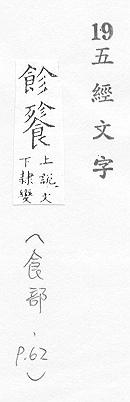 19五經文字
飻餮上說文下隸變（食部、p.62）